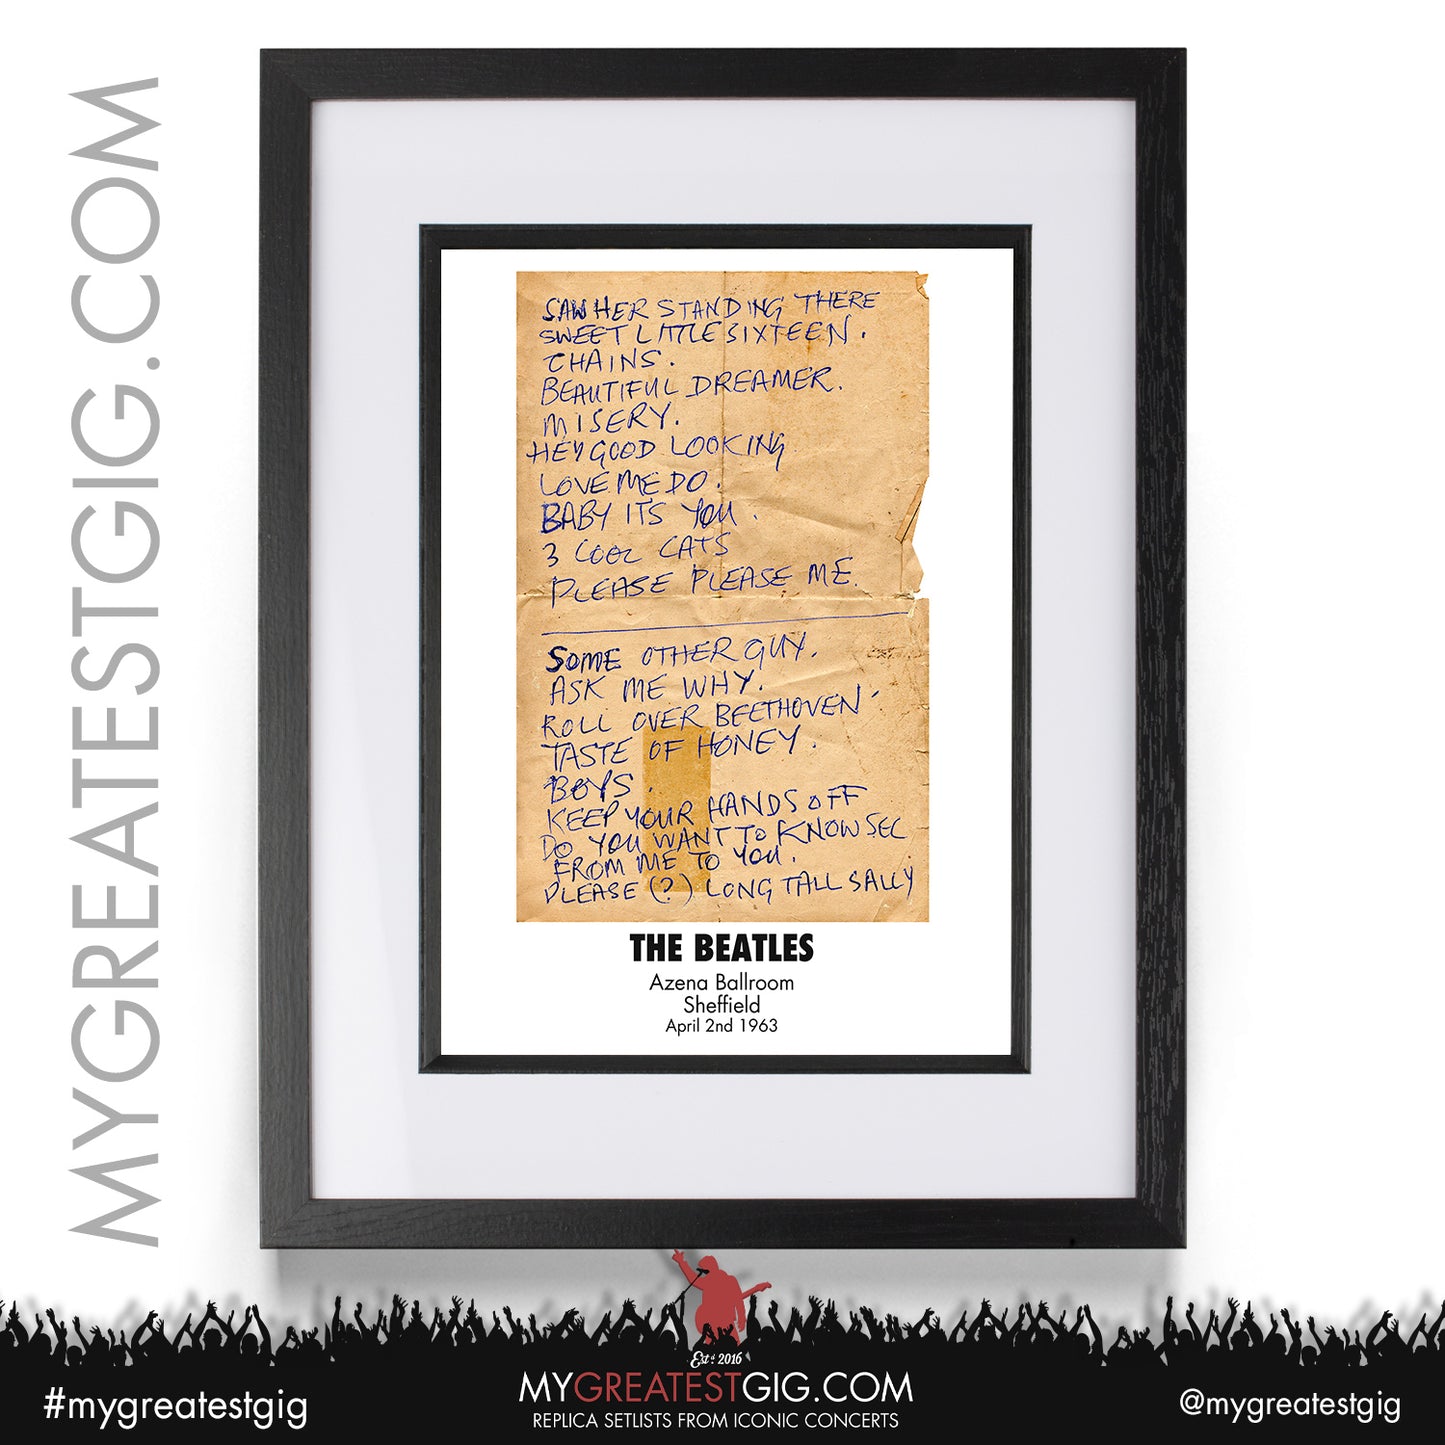 MYGREATESTGIG.COM
SAW HER STANDING THERE
SWEET LITTLE SIXTEEN.
CHAINS.
BEAUTIFUL DREAMER.
MISERY.
HEY GOOD LOOKING
LOVE ME DO.
BABY ITS YOU.
3 COOL CATS
PLEASE PLEASE ME.
SOME OTHER GUY.
ASK ME WHY.
ROLL OVER BEETHOVEN
TASTE OF HONEY.
BOYS.
KEEP YOUR HANDS OFF
DO YOU WANT TO KNOW SEC
FROM ME TO YOU.
PLEASE (?) LONG TALL SALLY
THE BEATLES
Azena Ballroom
Sheffield
April 2nd 1963
Estd 2016
#mygreatestgig
MYGREATESTGIG.COM
REPLICA SETLISTS FROM ICONIC CONCERTS
@mygreatestgig